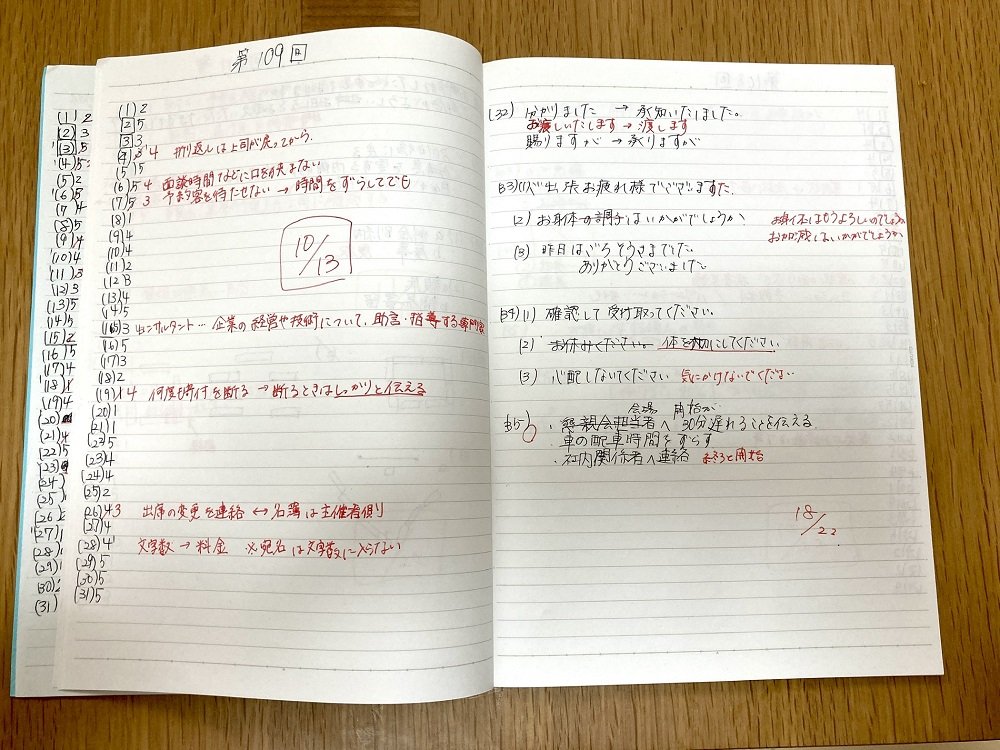 第109回
(1) 2
(2) 5
(3) 3
(4) 3 4 折り返しは上司が戻ってから。
(5) 5
(6) 5 4 面談時間などに口を挟まない
(7) 5 3 予約客を待たせない → 時間をずらしてでも
(8) 1
(9) 4
(10) 4
(11) 2
(12) 3
(13) 4
(14) 5
10/13
(15) 3 4 コンサルタント… 企業の経営や技術について、助言・指導する専門家
(16) 5
(17) 3
(18) 2
(19) 1 4 何度も寄付を断る → 断るときはしっかりと伝える
(20) 1
(21) 1
(22) 5
(23) 4
(24) 4
(25) 2
(26) 4 3 出席の変更を連絡 ↔ 名簿は主催者側り
(27) 4
(28) 4 文字数 → 料金 ※宛名は文字数に入らない
(29) 5
(30) 5
(31) 5
(1) 2
(2) 3
(3) 5
(4) 5
(5) 2
(6) 5
(7) 4
(8) 5
(9) 4
(10) 4
(11) 3
(12) 3
(13) 5
(14) 5
(15) 2
(16) 5
(17) 4
(18) 1
(19) 4
(20)
(21) 4
(22) 5
(23)
(24)
(25) 1
(26)
(27) 1
(28) 1
(29) 1
(30)
(31)
(32) 分かりました → 承知いたしました。
お渡しいたします → 渡します
賜りますが → 承りますが
33) (1) ご出張お疲れ様でございました。
(2) お身体の調子はいかがでしょうか お身体はもうよろしいのでしょうか
お加減はいかがでしょうか
(3) 昨日はごちそうさまでした
ありがとうございました
34) (1) 確認して受け取ってください。
(2) お休みください。 体を大切にしてください
(3) 心配しないでください 気にかけないでください
35) 会場 開始が
・懇親会担当者へ 30分遅れることを伝える
・車の配車時間をずらす
・社内関係者へ連絡
18/22